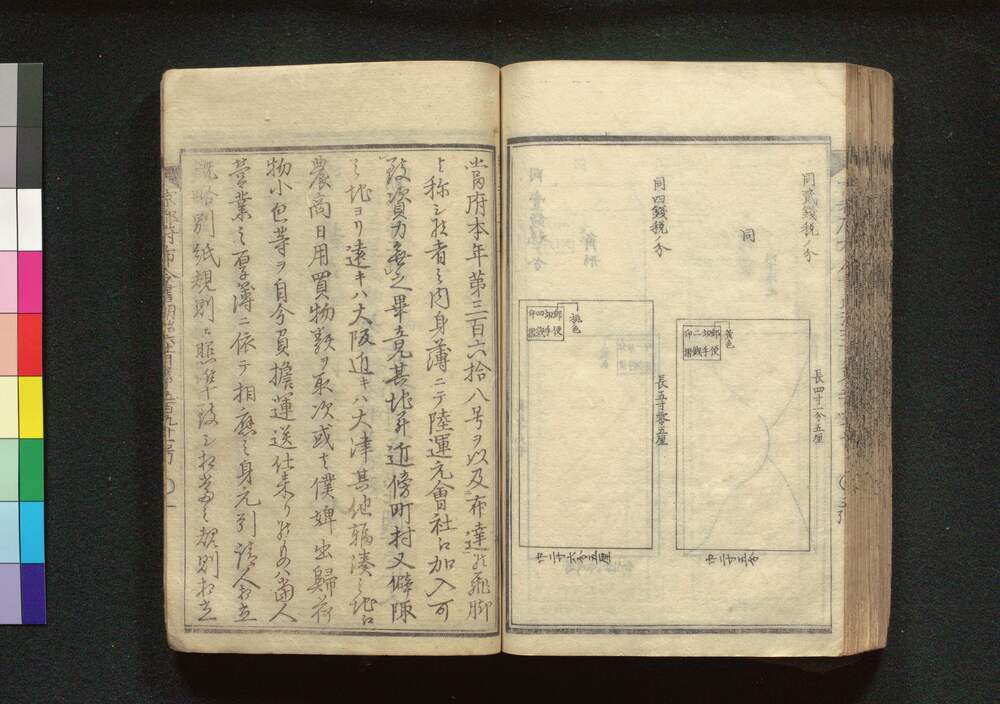 同貳錢税ノ分
同
黄色
郵便
切手
二錢
印
長四寸一分五厘
巾二寸五分
同四錢税ノ分
桃色
郵便
切手
四錢
印
長五寸零五厘
巾二寸六分五厘
當府本年第三百六拾八号ヲ以及布達候飛脚
ト称シ候者之内身薄ニテ陸運元會社江加入可
致資力無之畢竟其地并近傍町村又僻陬
之地ヨリ遠キハ大阪近キハ大津其他輻湊之地江
農商日用買物類ヲ取次或ハ僕婢出歸荷
物小包等ヲ自分負擔運送仕来リ候モノハ當人
営業之厚薄ニ依テ相應之身元引請人相立
概略別紙規則ニ照準致シ相當之規則相立